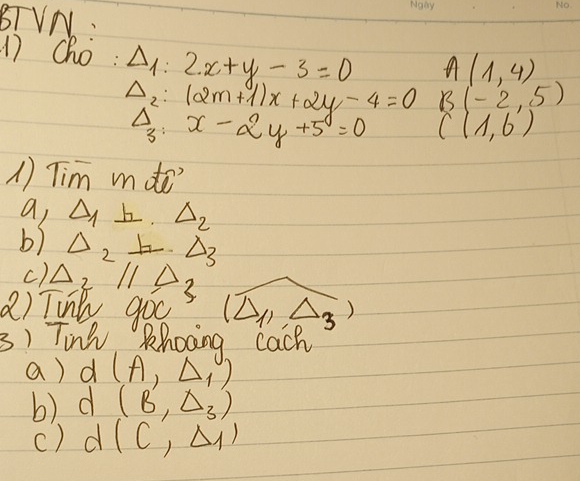 Ngày No.
BTVN:
1) Cho : Δ1: 2x+y-3=0 A(1,4)
Δ2: (2m+1)x+2y-4=0 B(-2,5)
Δ3: x-2y+5=0 C(1,6)
1) Tìm m để
a, Δ1 ⊥ Δ2
b) Δ2 ⊥ Δ3
c) Δ2 // Δ3
2) Tính góc (Δ1, Δ3)
3) Tính khoảng cách
a) d(A, Δ1)
b) d(B, Δ3)
c) d(C, Δ1)